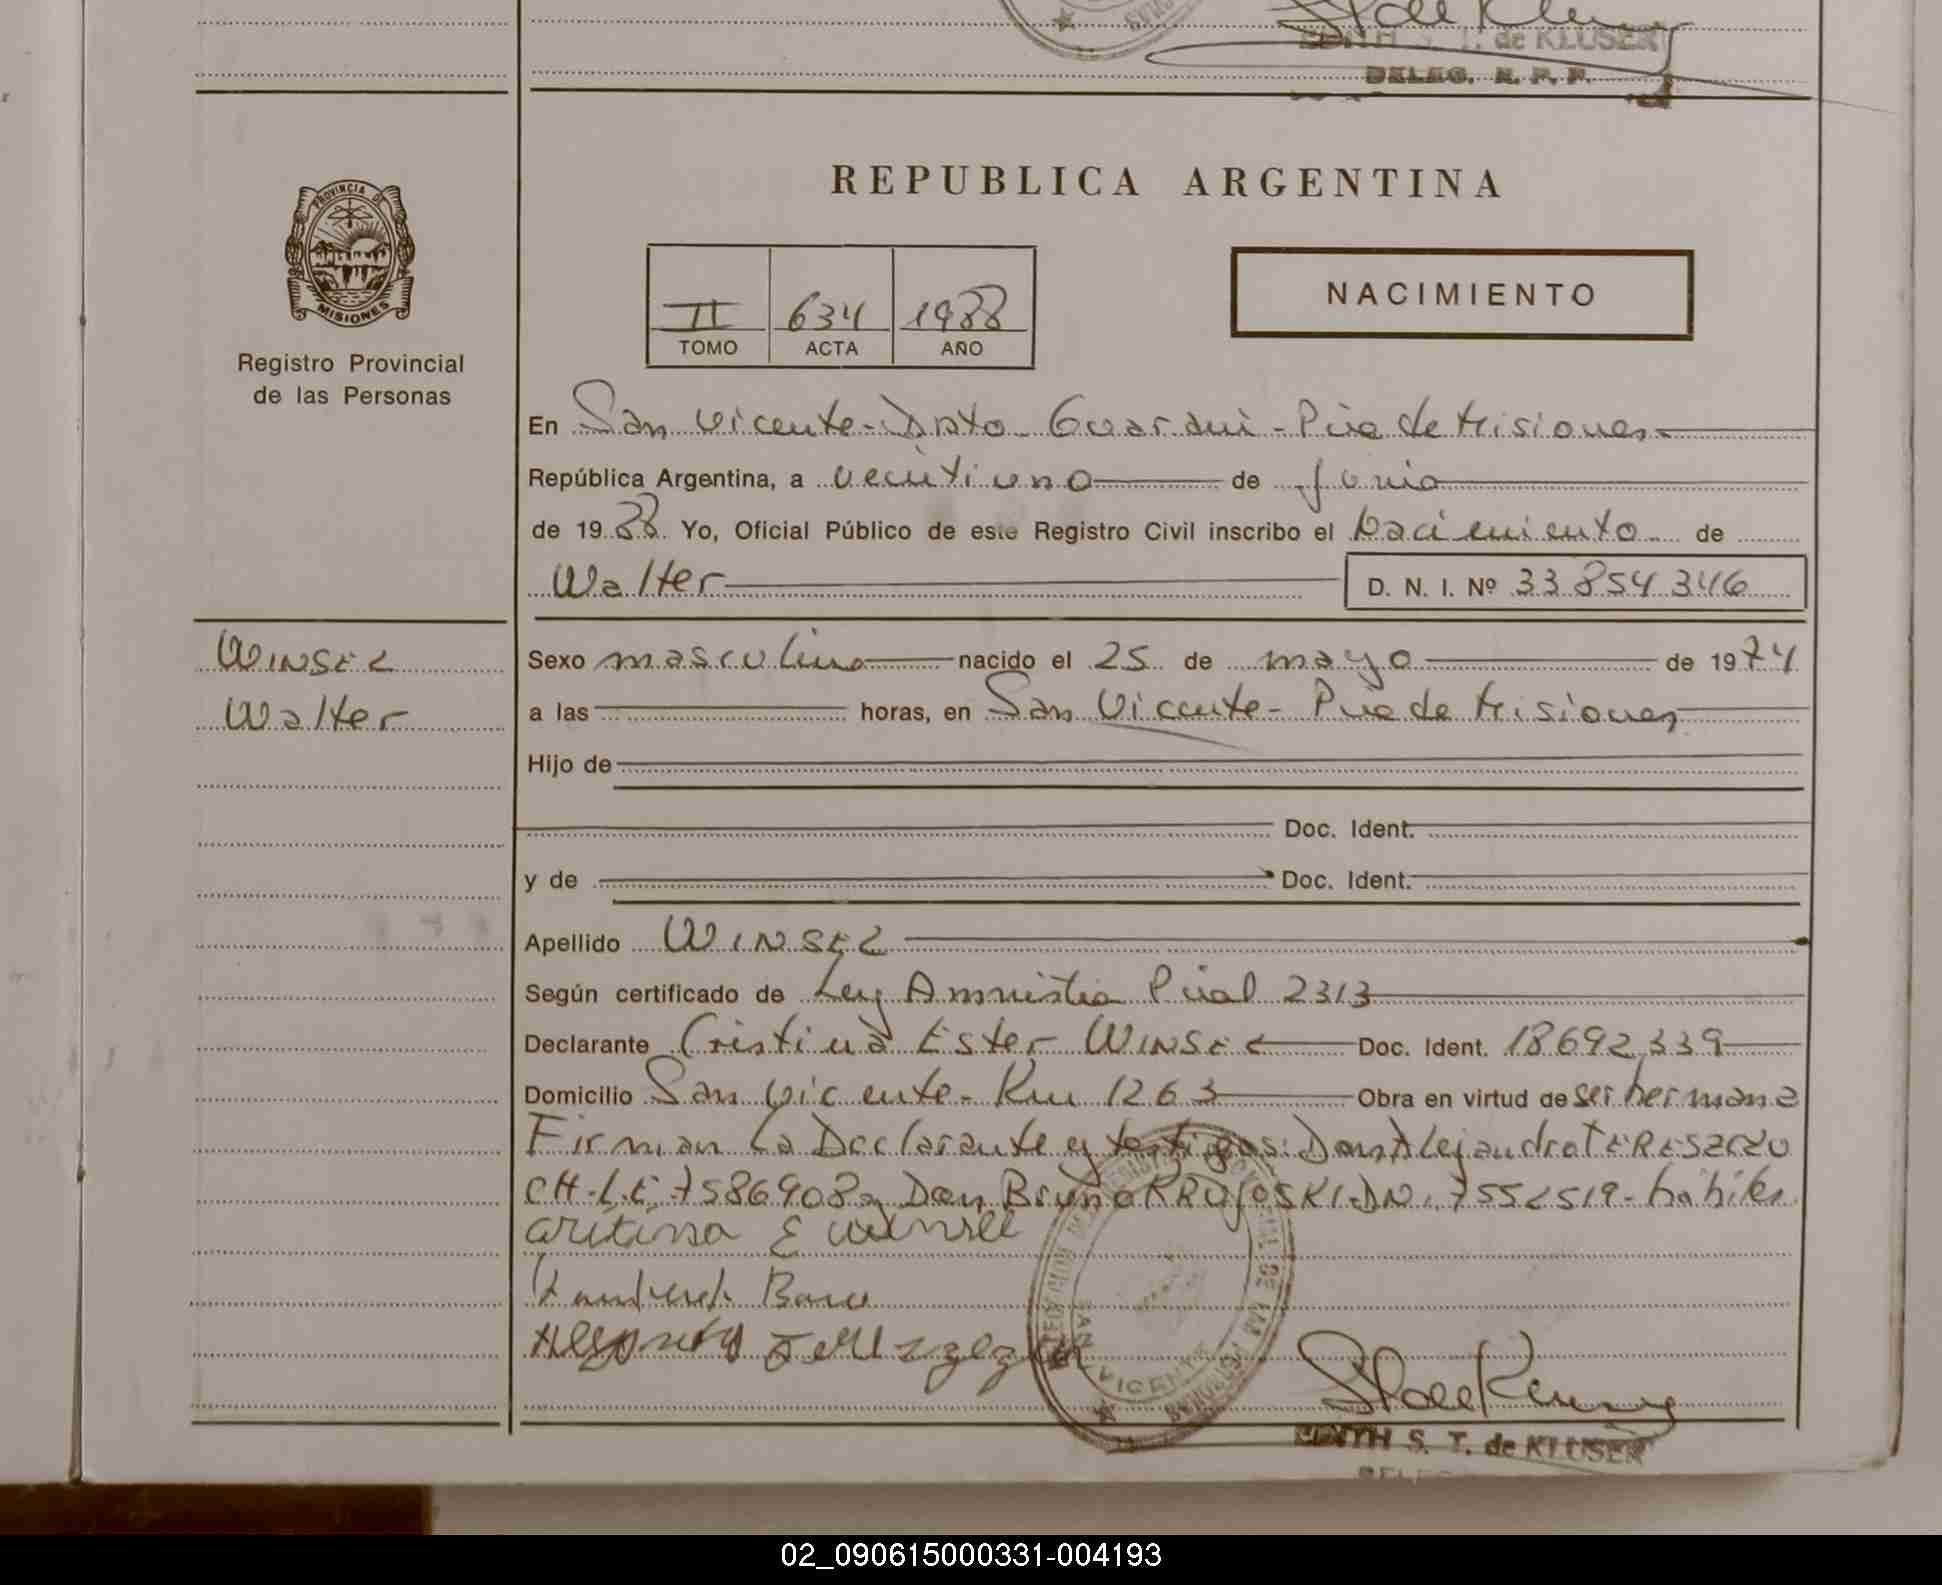 EDITH S. T. de KLUSER
DELEG. R. P. P.
PROVINCIA DE
MISIONES
Registro Provincial
de las Personas
REPUBLICA ARGENTINA
II 634 1988
TOMO ACTA AÑO
NACIMIENTO
En San Vicente - Dpto Guaraní - Pcia de Misiones
República Argentina, a veintiuno de Junio
de 1988 Yo, Oficial Público de este Registro Civil inscribo el Nacimiento de
Walter D. N. I. Nº 33 854 346
WINSEL
Walter
Sexo masculino nacido el 25 de mayo de 1974
a las horas, en San Vicente - Pcia de Misiones
Hijo de
Doc. Ident.
y de Doc. Ident.
Apellido WINSEL
Según certificado de Ley Amnistia Pcial 2313
Declarante Cristina Ester WINSEL Doc. Ident. 18692339
Domicilio San Vicente - Km 1263 Obra en virtud de ser hermana
Firman La Declarante y testigos: Don Alejandro
Don Bruno DNI. 7552519 - hábiles
cristina E winsel
EDITH S. T. de KLUSER
02_090615000331-004193